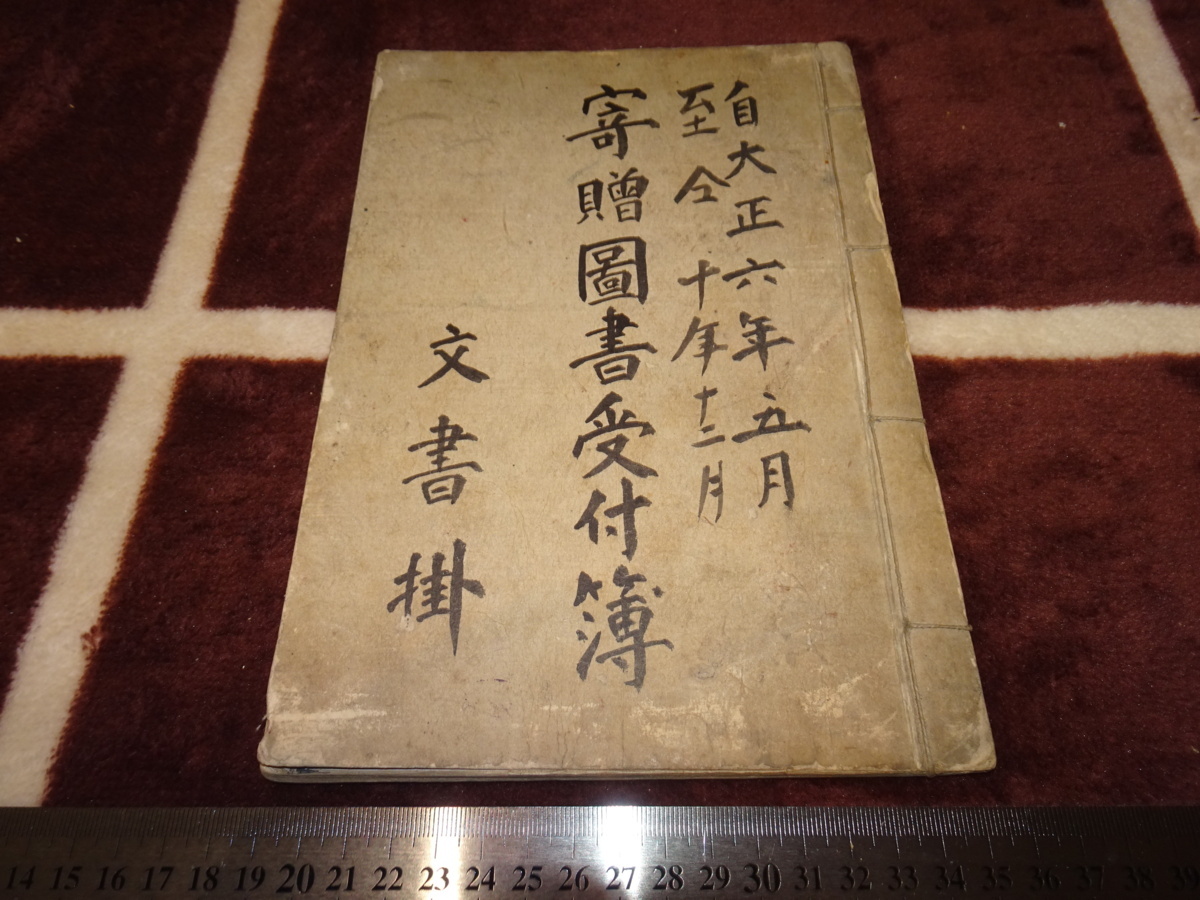 自大正六年五月
至仝十年十二月
寄贈圖書受付簿
文書掛
14 15 16 17 18 19 20 21 22 23 24 25 26 27 28 29 30 31 32 33 34 35 36 37 38 39